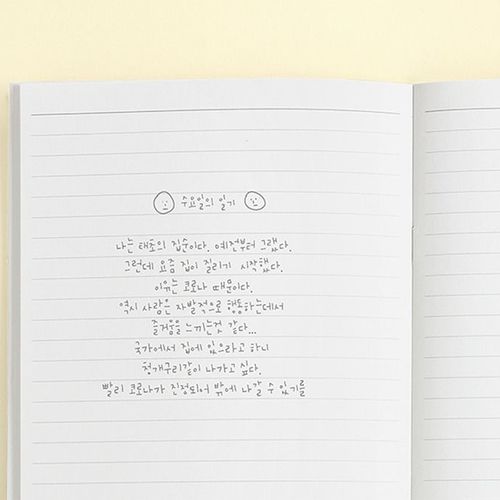 수요일의 일기
나는 태초의 집순이다. 예전부터 그랬다.
그런데 요즘 집이 질리기 시작했다.
이유는 코로나 때문이다.
역시 사람은 자발적으로 행동하는데서
즐거움을 느끼는것 같다...
국가에서 집에 있으라고 하니
청개구리같이 나가고 싶다.
빨리 코로나가 진정되어 밖에 나갈 수 있기를